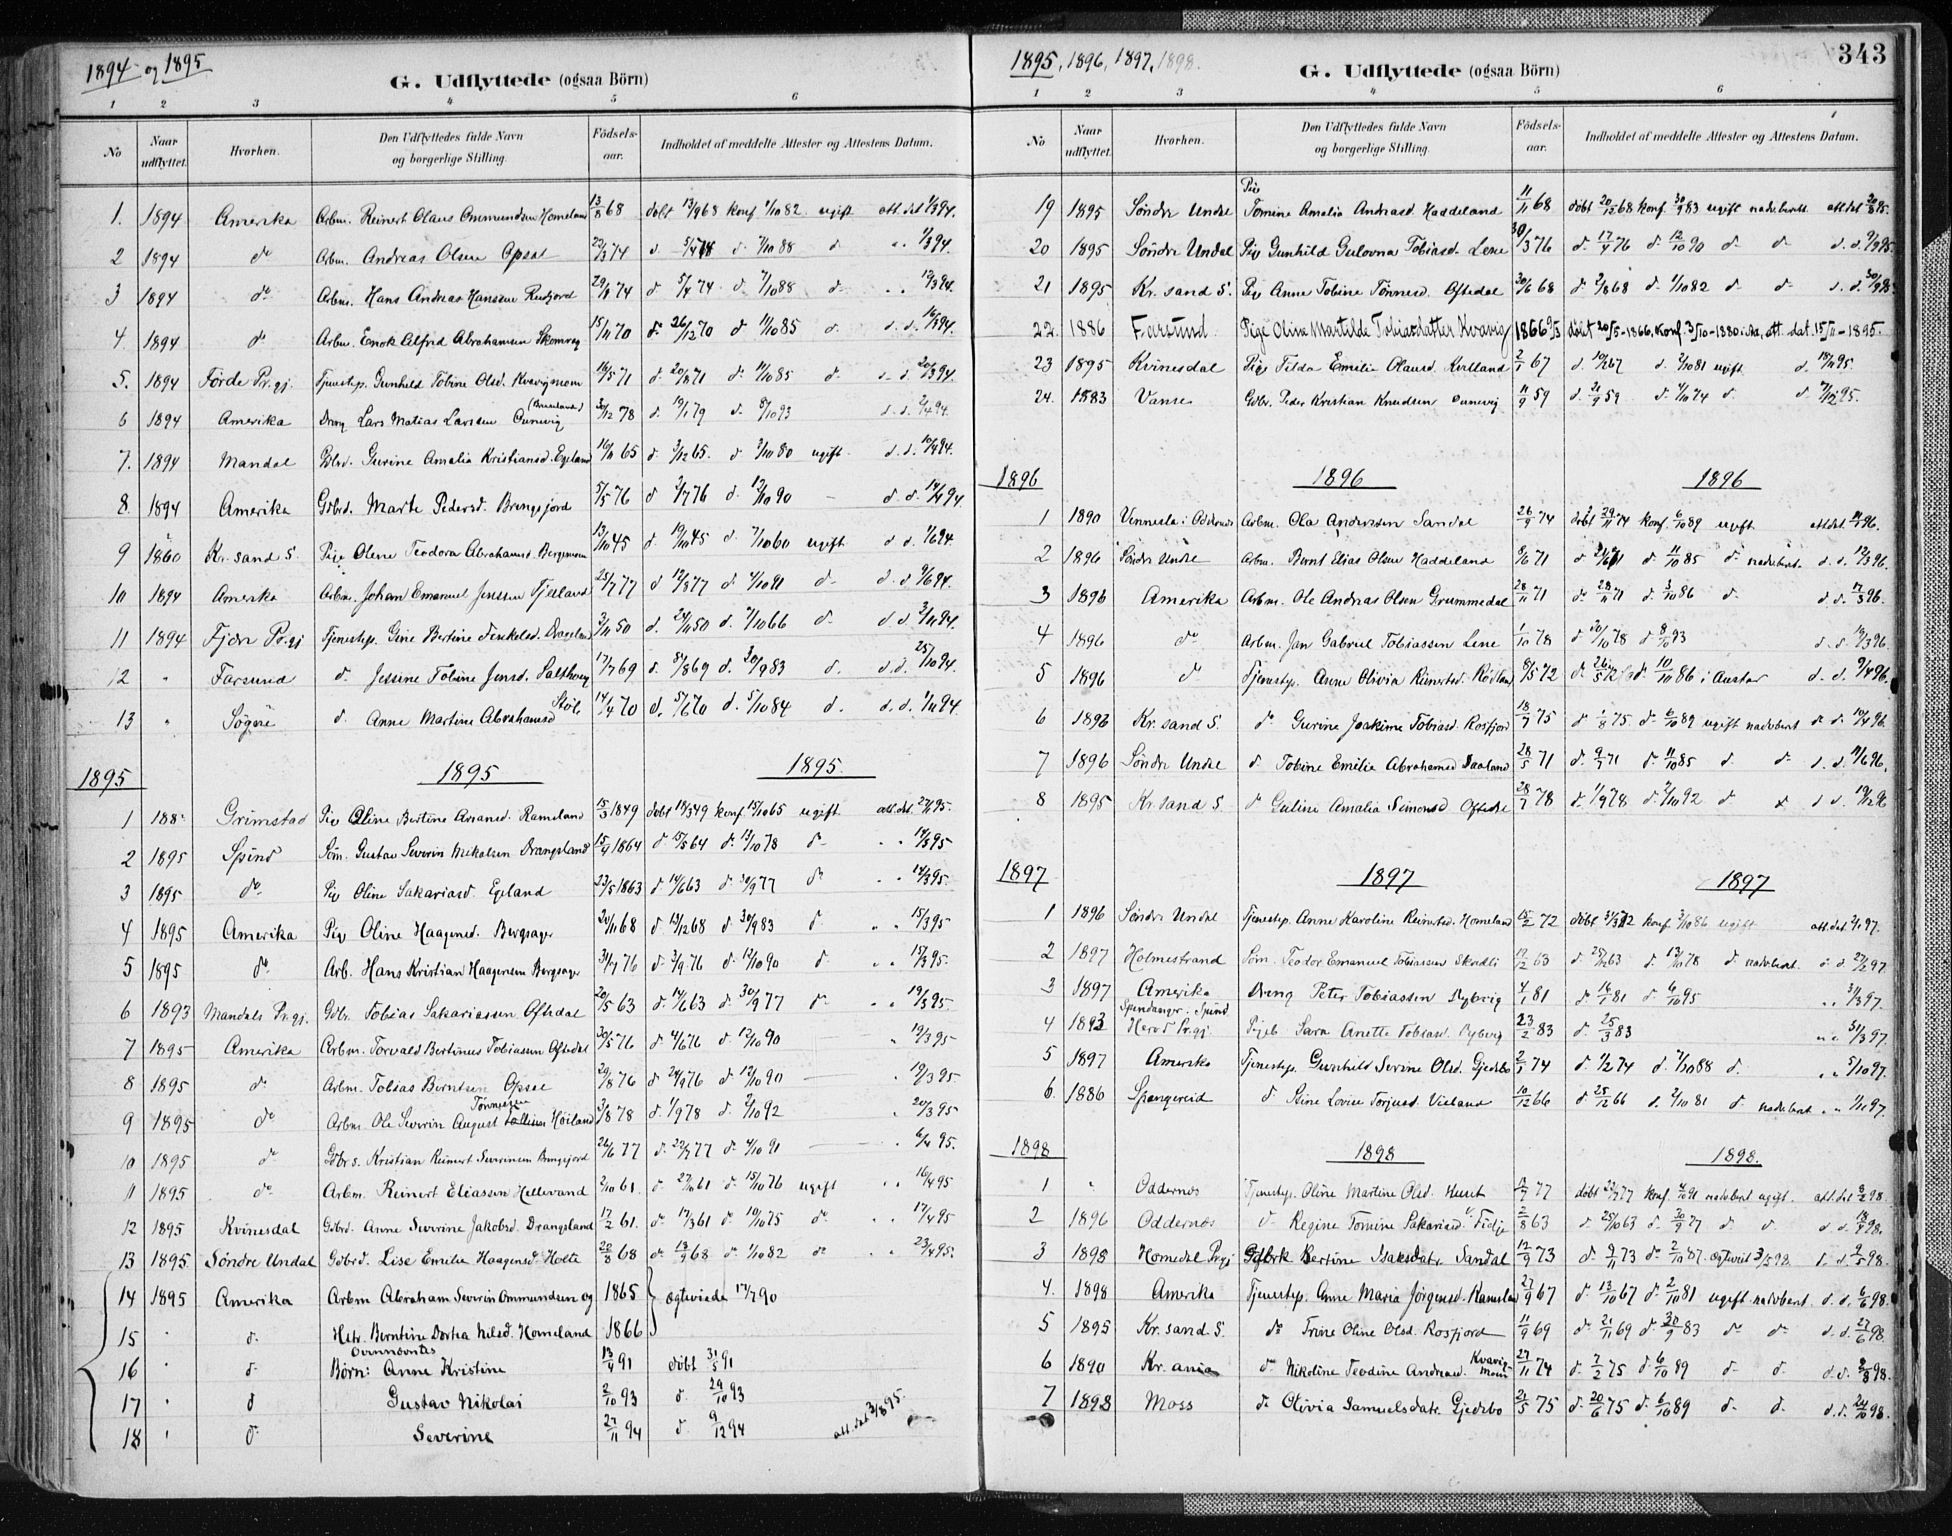 1894 og 1895
G. Udflyttede (ogsaa Börn)
1 2 3 4 5 6
No Naar udflyttet. Hvorhen. Den Udflyttedes fulde Navn og borgerlige Stilling. Födsels-aar. Indholdet af meddelte Attester og Attestens Datum.
1. 1894 Amerika Arbm. Reinert Olaus Ommundsen Homeland 13/8 68 döbt 13/9 68 konf 1/10 82 ugift att. dat 1/3 94.
2 1894 do Arbm. Andreas Olsen Opsal 23/3 74 d. d 7/10 88 d 1/3 94.
3 1894 do Arbm. Hans Andreas Hanssen Rosfjord 74 d 5/4 74 d 7/10 88 d 12/3 94.
4 1894 do Arbm. Enok Alfred Abrahamsen 15/11 70 d 26/12 70 d 11/10 85 d. d. d. 16/3 94.
5. 1894 Förde Pr.gj. Tjenestep. Gunhild Tobine Olsd. Kvavigmoen 71 d 71 d 11/10 85 d d. d 20/3 94.
6 1894 Amerika Dreng Lars Matias Larssen 31/12 78 d 19/1 79 d 8/10 93 d. d. 2/4 94.
7. 1894 Mandal Gdbrd. Gurine Amalia Kristiansd. Egeland 16/11 65 d. 3/12 65. d 3/10 80 ugift d. d. 10/4 94.
8. 1894 Amerika Gdbrd. Marte Pedersd. Bringsjord 5/5 76 d 2/7 76 d. 12/10 90 d. d. 14/4 94.
9 1860 Kr. sand S. Pige Olene Teodora Abrahamsd. Bergemoen 13/10 45 d 19/10 45 d 7/10 60 ugift d d. 1/6 94.
10 1894 Amerika Arbm. Johan Emanuel Jenssen Tjersland 25/7 77 d 12/8 77 d 4/10 91 d d. d 9/6 94.
11 1894 Fjære Pr.gj Tjenestep. Gine Bertine Terkelsd. 3/11 50 d. 24/11 50 d 7/10 66 d. d d 2/11 94.
12 " Farsund d. Jessine Tobine Jensd. 17/7 69 d. 8/8 69 d. 30/9 83 d. d. d. 25/10 94.
13 " Sögne d. Anne Martine Abrahamsd 14/4 70 d. 5/6 70 d. 5/10 84 d. d. d. 1/11 94.
1895 1895 1895.
1 188 Grimstad Pige Oline Bertine Ananed. Rameland 15/3 1849 döbt 18/3 49 konf 15/10 65 ugift att. dat. 95.
2 1895 Spind Söm. Gustav Severin Mikalsen Drangsland 15/4 1864 d 15/5 64 d. 13/10 78 d " " 14/3 95
3 1895 do Pige Oline Sakariasd. Egeland 23/5 1863 d. 14/6 63 d. 30/9 77 d " " 14/3 95.
4 1895 Amerika Pige Oline Haagensd. Bergsager 20/11 68 d 13/12 68 d 30/9 83 d " " 15/3 95
5 1895 do Arb. Hans Kristian Haagensen Bergsager 31/7 76 d. 3/9 76 d. 12/10 90 d. " " 15/3 95.
6 1893 Mandals Pr.gj. Gdbr. Tobias Sakariassen Oftedal 20/5 63 d 14/6 63 d. 30/9 77 d " " 19/3 95.
7 1895 Amerika Arbm. Torvald Bertinus Tobiassen Oftedal 30/5 76 d. 4/6 76 d. 12/10 90 " 19/3 95
8 1895 d. Arbm. Tobias Berntsen Opsal 29/8 76 d 24/9 76 d. 12/10 90 " 19/3 95.
9 1895 do Arbm. Ole Severin August Tönnessen Höiland 3/8 78 d. 1/9 78 d. 2/10 92 " 20/3 95
10 1895 do Gdbrs. Kristian Reinert Severinsen Bringsjord 26/6 77 d. 29/7 77 d. 4/10 91 " 6/4 95.
11 1895 do Arbm. Reinert Eliassen Hellevand 2/10 61. d. 27/10 61 d. 15/10 76 ugift " " 16/4 95
12 1895 Kvinesdal Gdbrd. Anne Severine Jakobsd. Drangsland 17/2 61. d. 17/3 61 d. 10/10 75 do " " 17/4 95
13 1895 Söndre Undal Gdbrd. Lise Emelie Haagensd. Holte 20/8 68 d. 13/9 68 d. 1/10 82 do " " 23/4 95.
14 1895 Amerika Arbm Abraham Severin Ommundsen og 1865 ægteviede 17/7 90
15 " d. Hstr. Berntine Dortea Nilsd. Homeland 1866
16 " d Ovennævntes Börn: Anne Kristine 13/4 91 döbt 31/5 91
17 " d Gustav Nikolai 2/10 93 d. 29/10 93
18 " d Severine 27/11 94 d. 9/12 94 att. dat 3/8 95.
1895, 1896, 1897, 1898.
343
G. Udflyttede (ogsaa Börn)
1 2 3 4 5 6
No Naar udflyttet. Hvorhen. Den Udflyttedes fulde Navn og borgerlige Stilling. Födsels-aar. Indholdet af meddelte Attester og Attestens Datum.
19 1895 Söndre Undal Pige Tomine Amalia Andreasd. Haddeland 11/11 68 döbt 20/12 68 konf 30/9 83 ugift nadvberett att. dat 20/8 95.
20 1895 Söndre Undal Pige Gunhild Gulovna Tobiasd. Lene 30/3 76 d. 17/4 76 d 12/10 90 d d d. d. 9/9 95
21 1895 Kr. sand S. Pige Anne Tobine Tönnesd. Oftedal 30/6 68 d. 2/8 68 d. 1/10 82 d d d. d. 30/9 95
22. 1886 Farsund. Pige Oline Martilde Tobiasdatter Kvavig 1866 döbt 20/5-1866, Konf. 3/10-1880 att. dat. 15/11-1895.
23 1895 Kvinesdal Pige Tilda Emilie Olausd. Kvilland 2/1 67 d. 10/2 67 d. 2/10 81 ugift d. 18/11 95.
24. 1883 Vanse Gdbr. Peder Kristian Knudsen 11/9 59 d. 21/9 59 d. 4/10 74 d. d. 7/12 95.
1896 1896 1896
1 1890 Vennesla i Oddernes Arbm. Ola Anderssen Sandal 26/9 74 döbt 29/11 74 konf 6/10 89 ugift att. dat. 96.
2 1896 Söndre Undal Arbm. Bernt Elias Olsen Haddeland 8/6 71 d. 71 d 11/10 85 d. nadvbert. d. d. 12/3 96.
3 1896 Amerika Arbm. Ole Andreas Olsen Grummedal 28/11 71 d. 71 d 3/10 86 d. d. d. 17/3 96.
4 1896 do Arbm. Jan Gabriel Tobiassen Lene 1/10 78 d 20/10 78 d 8/10 93 d. d. 19/3 96.
5 1896 d Tjenestep. Anne Olivia Reinertsd. Rödland 8/5 72 d. 26/5 72 d. 10/10 86 i Austad d. d. 9/4 96.
6 1896 Kr. sand S. do Gurine Joakime Tobiasd. Rosfjord 18/7 75 d 1/8 75 d. 6/10 89 ugift nadvbert d. d. 10/4 96.
7 1896 Söndre Undal d Tobine Emilie Abrahamsd Daaland 28/5 71 d. 9/7 71 d. 11/10 85 d d d. d. 11/6 96.
8 1895 Kr. sand S. d Guline Amalia Simonsd Oftedal 28/7 78 d. 1/9 78 d. 2/10 92 d d d d. 19/12 96
1897 1897 1897
1 1896 Söndre Undal Tjenestep. Anne Karoline Reinertsd. Homeland 72 döbt 31/3 72 konf 3/10 86 ugift att. dat. 97.
2 1897 Holmestrand Söm. Teodor Emanuel Tobiassen 17/12 63 d 27/12 63 d. 13/10 78 d. nadvbert. d. d. 27/2 97.
3 1897 Amerika Dreng Peter Tobiassen Dybvig 4/1 81 d 16/1 81 d 6/10 95 " " 31/3 97.
4 1893 Spindsanger i Spind Herad Pr.gj. Pigeb Sara Anette Tobiasd. Dybvig 23/2 83 d. 25/3 83 " " 31/3 97.
5 1897 Amerika Tjenestep. Gunhild Sevine Olsd. Gjedsbo 2/1 74 d. 1/2 74 d. 7/10 88 d. " " 5/10 97.
6. 1886 Spangereid d Stine Lovise Torjusd. Vieland 10/12 66 d. 25/12 66 d. 2/10 81 d. nadvbert " " 1/11 97.
1898 1898 1898.
1 " Oddernes Tjenestep. Oline Martine Olsd. 77 döbt 77 konf. 4/10 91 nadvbert ugift. att. dat 8/2 98.
2 1896 Oddernes d Regine Tomine Sakariasd. Fidje 2/8 63 d 25/10 63 d. 30/9 77 d. d. d. d. 98.
3 1898 Homedal Prgj Gdbrk Bertine Isaksdatr. Sandal 12/9 73 d. 9/11 73 do 2/10 87. ægteviet 3/5 98 d. d. 9/5 98.
4. 1898 Amerika Tjenestep. Anne Maria Jörgensd. Rameland 27/9 67 d. 13/10 67 d. 2/10 81 ugift nadvbert. d. d. 6/6 98.
5 1895 Kr. sand S. do Trine Oline Olsd. Rosfjord 11/9 69 d. 21/11 69 d. 30/9 83 do do d. d. 27/6 98.
6 1890 Kr. ania do Nikoline Teodine Andreasd. Kvavig-moen 27/11 74 d. 7/2 75 d. 6/10 89 d. d. d. d. 98.
7 1898 Moss do Olivia Samuelsdatr. Gjedsbo 21/5 75 d. 20/6 75 d. 6/10 89 d. d. d. d. 24/10 98.